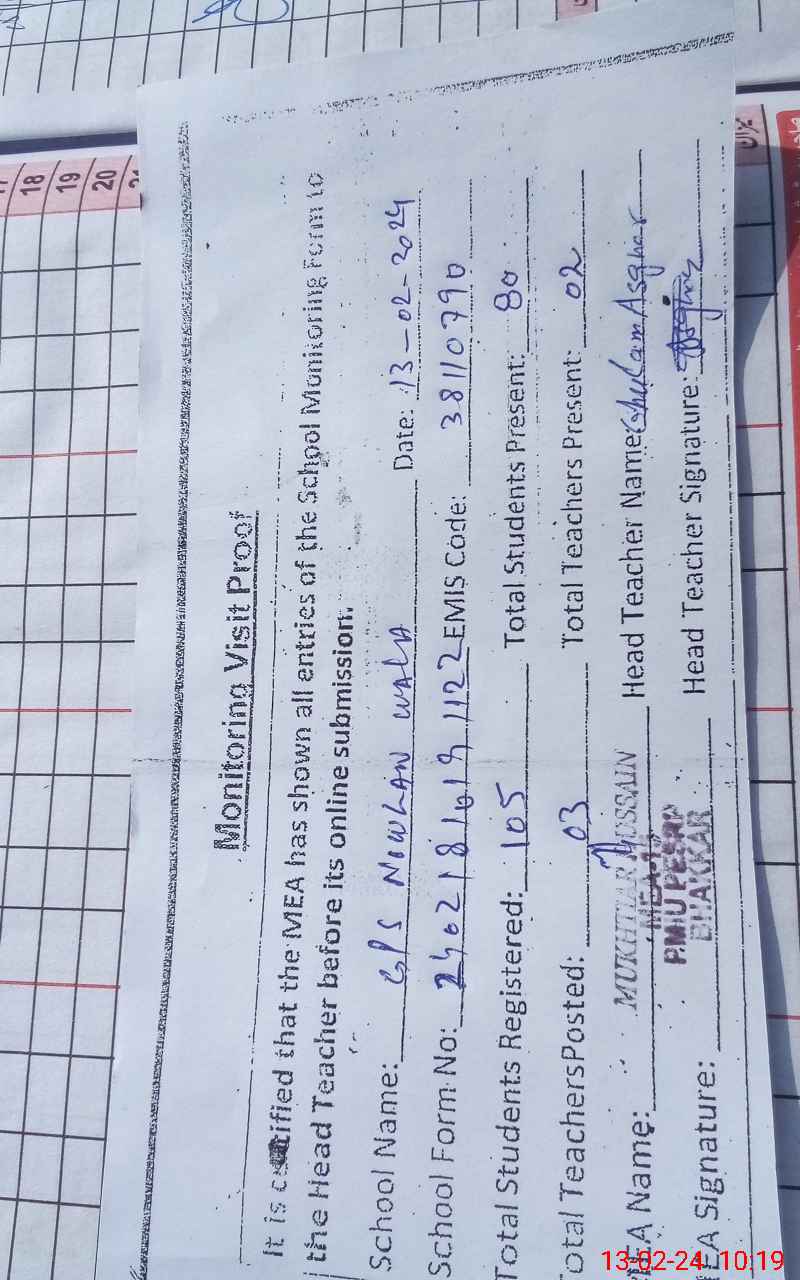 18
19
20
Monitoring Visit Proof
It is certified that the MEA has shown all entries of the School Monitoring Form to
the Head Teacher before its online submission.
School Name: GPS NOWLAN WALA Date: 13-02-2024
School Form No: EMIS Code: 38110790
Total Students Registered: 105 Total Students Present: 80
Total Teachers Posted: 03 Total Teachers Present: 02
MEA Name: MUKHTIAR HUSSAIN Head Teacher Name: Ghulam Asghar
MEA
PMIU PESRP
BHAKKAR
MEA Signature: Head Teacher Signature:
13-02-24 10:19